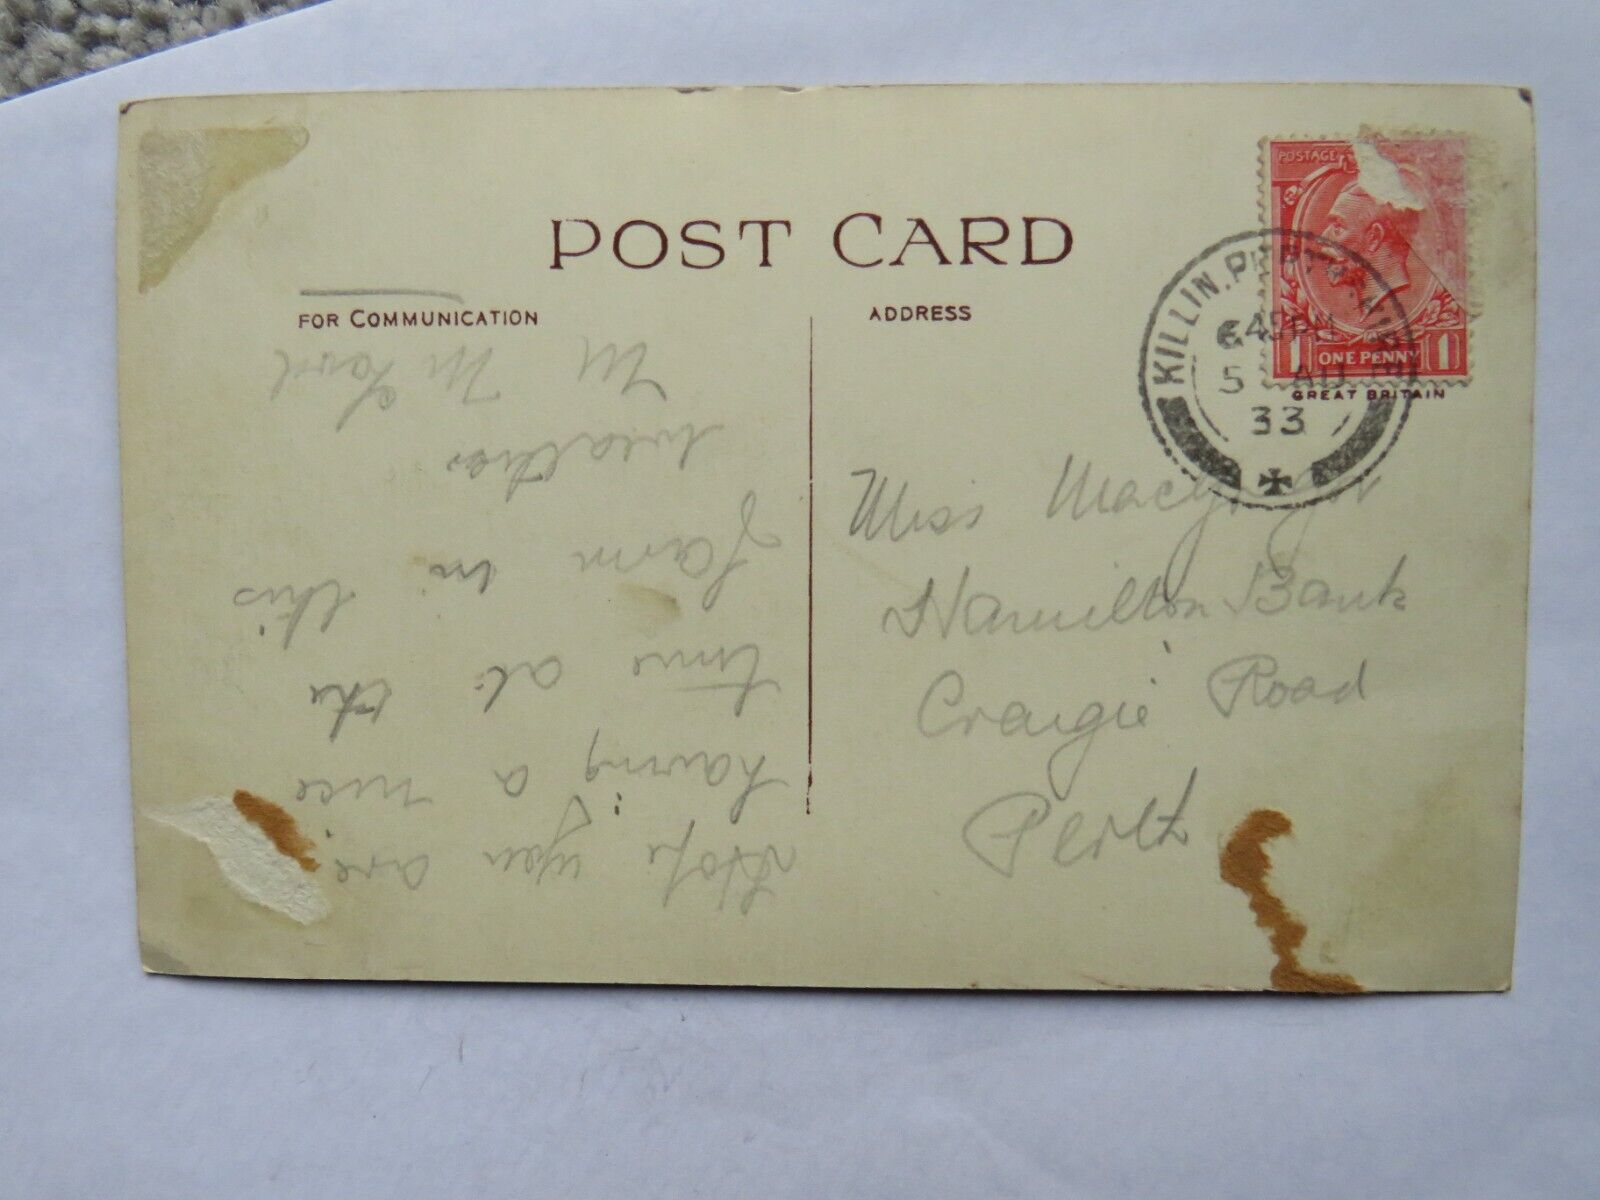 POST CARD
FOR COMMUNICATION
ADDRESS
POSTAGE
1 ONE PENNY 1
GREAT BRITAIN
KILLIN, PERTHSHIRE
5 AU
33
Miss Macgregor
Hamilton Bank
Craigie Road
Perth
Hope you are
having a nice
time at the
farm in this
weather
M